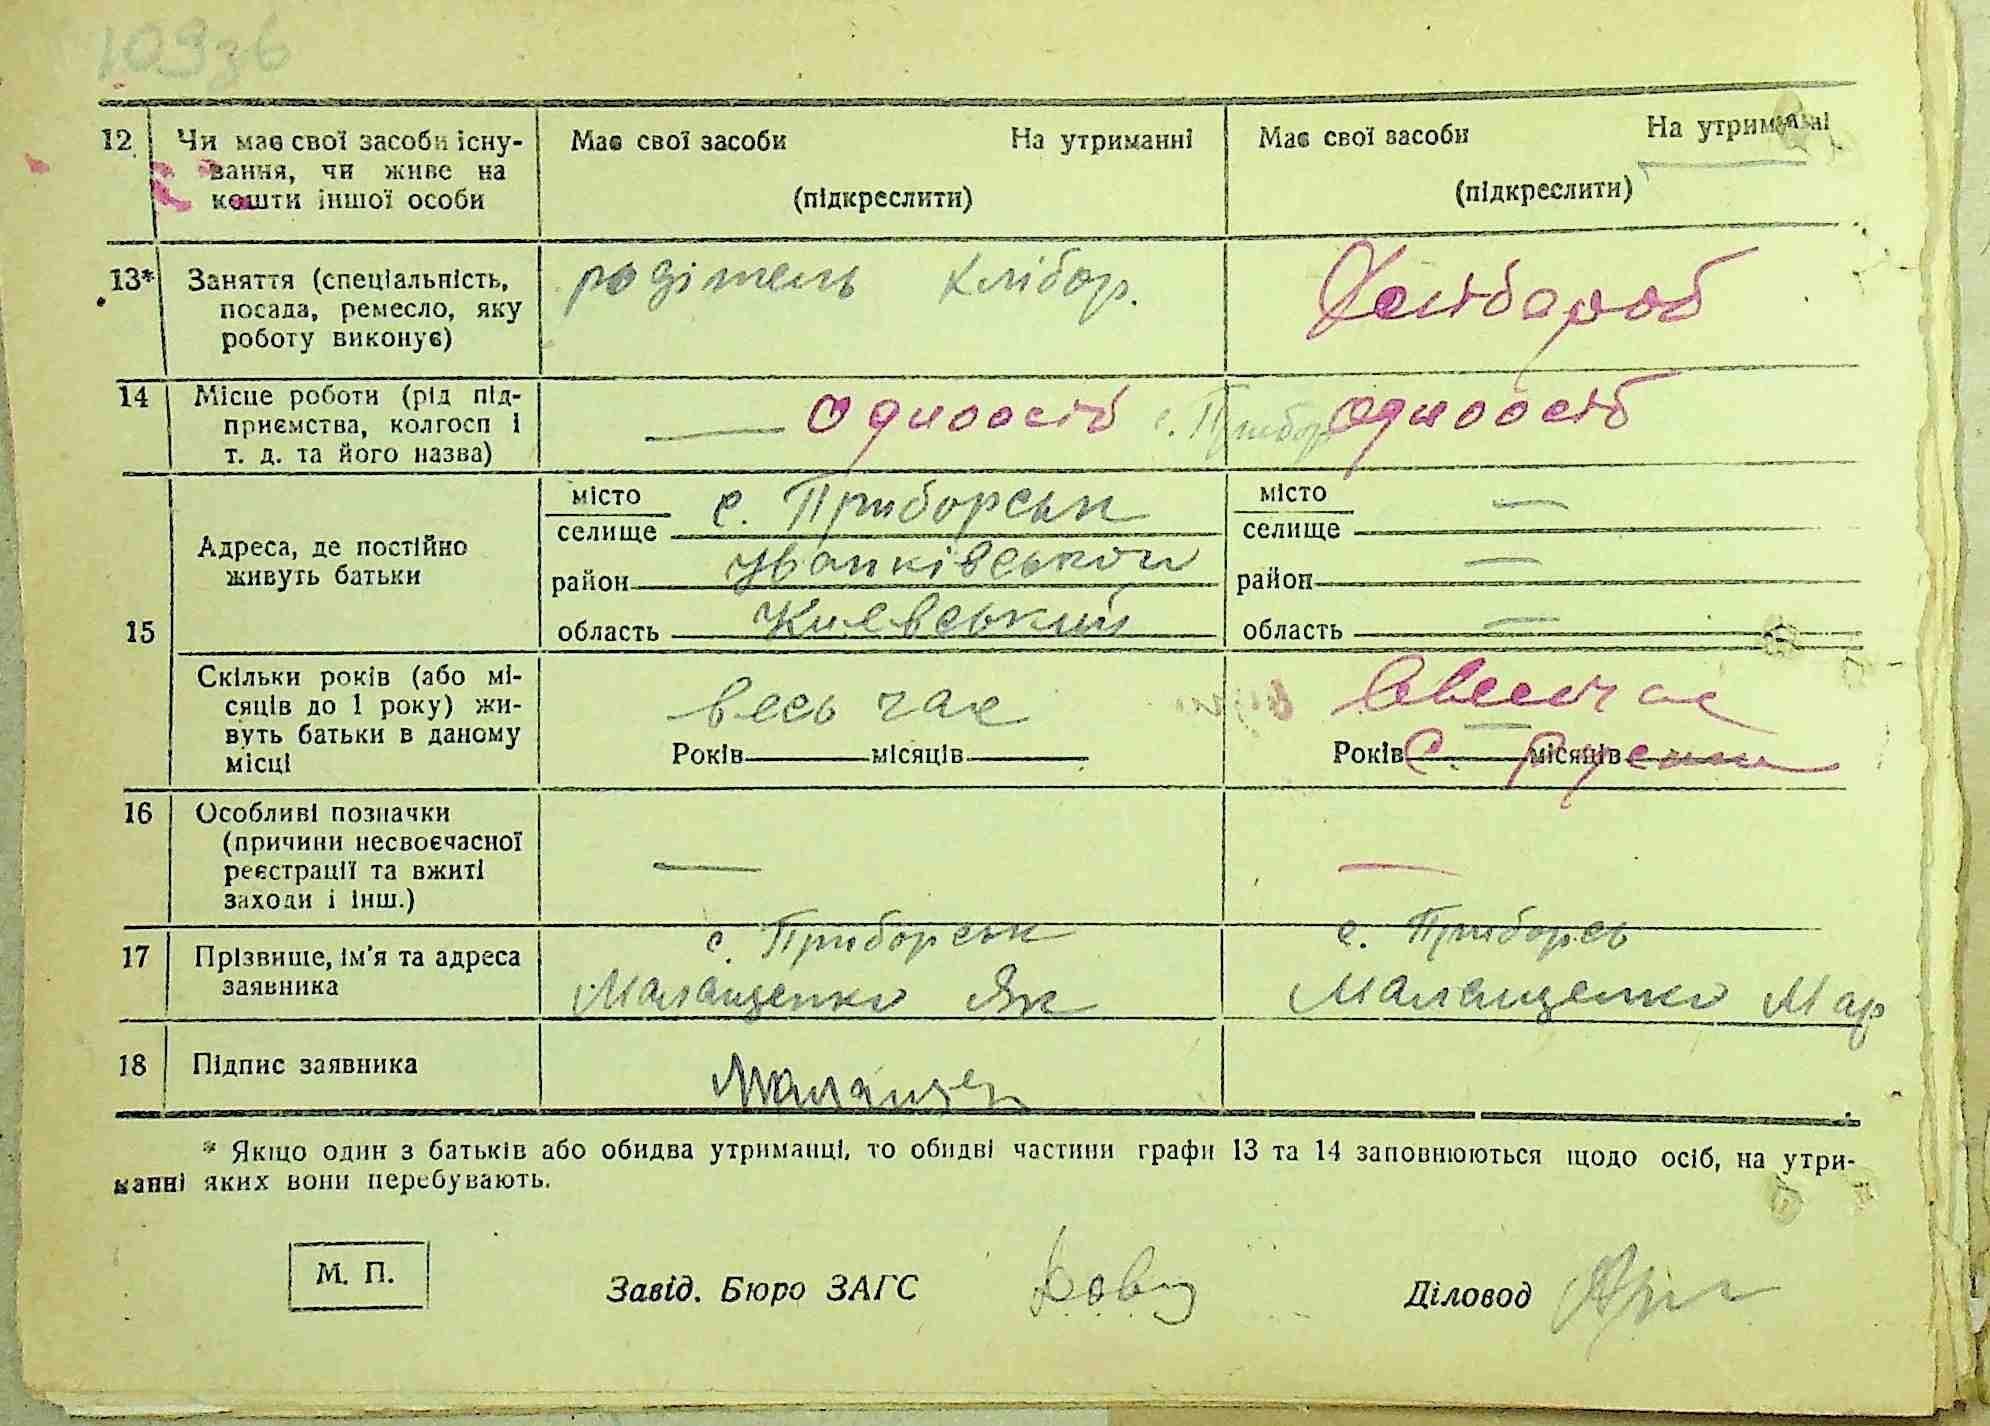 109зв
12 Чи має свої засоби існу- Має свої засоби На утриманні Має свої засоби На утриманні
вання, чи живе на
кошти іншої особи (підкреслити) (підкреслити)
13* Заняття (спеціальність, родітель хлібор. Хлібороб
посада, ремесло, яку
роботу виконує)
14 Місце роботи (рід під- — одноосіб с. Прибор одноосіб
приємства, колгосп і
т. д. та його назва)
15 Адреса, де постійно
живуть батьки
місто с. Приборськ місто —
селище селище
район Іванківської район —
область Киевський область —
Скільки років (або мі- весь час
сяців до 1 року) жи-
вуть батьки в даному Років місяців Років с. місяців
місці
16 Особливі позначки
(причини несвоєчасної
реєстрації та вжиті — —
заходи і інш.)
с. Приборськ с. Приборсь
17 Прізвище, ім'я та адреса
заявника Малащенко Як Малащенко Мар
18 Підпис заявника Малащен
* Якщо один з батьків або обидва утриманці, то обидві частини графи 13 та 14 заповнюються щодо осіб, на утри-
манні яких вони перебувають.
М. П. Завід. Бюро ЗАГС Діловод